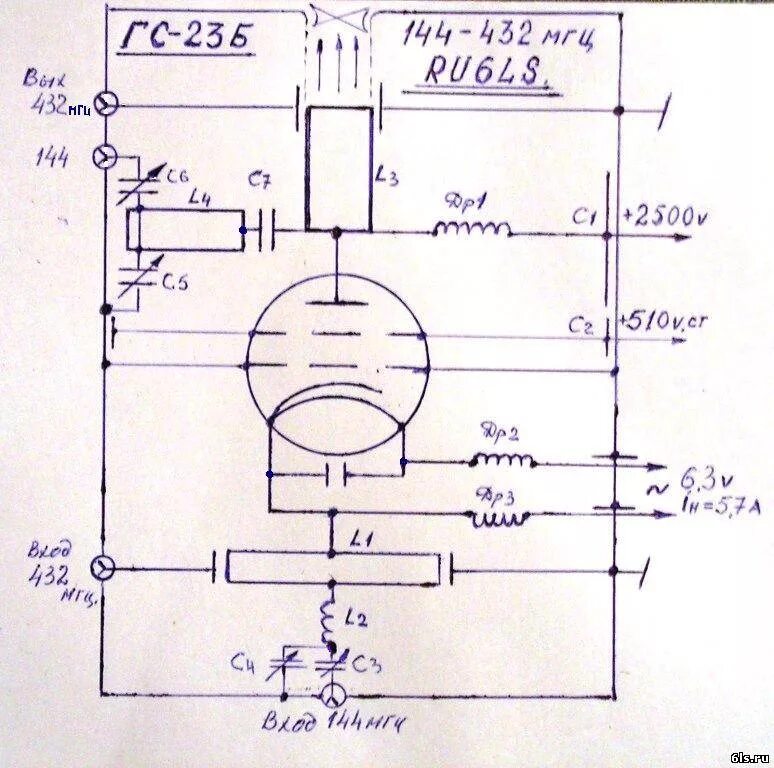 ГС-23Б
144-432 мгц
RU6LS.
Вых
432 мгц
144
C6
L4
C7
L3
Др1
C1
+2500v
C5
C2
+510v.ст
Др2
6,3v
~
Iн=5,7А
Др3
L1
Вход
432
мгц.
L2
C4
C3
Вход 144 мгц
6ls.ru